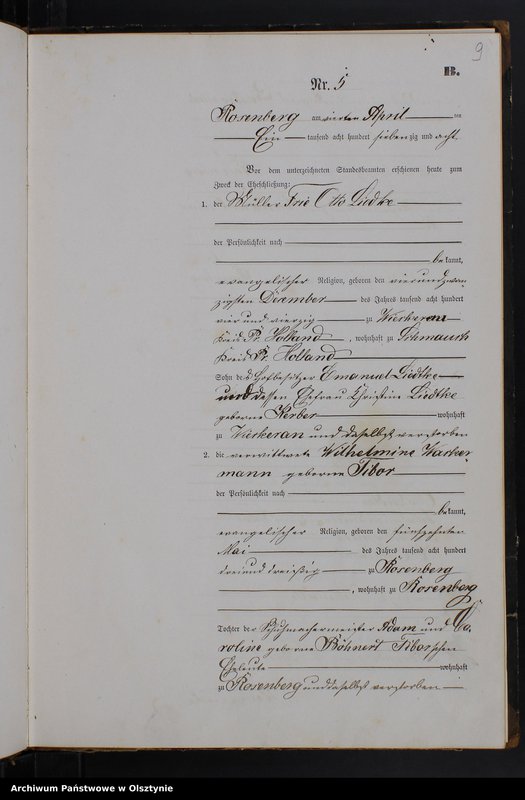 9
B.
Nr. 5
Rosenberg am vierten April ten
Ein tausend acht hundert siebenzig und acht.
Vor dem unterzeichneten Standesbeamten erschienen heute zum
Zweck der Eheschließung:
1. der Müller Otto Liedke
der Persönlichkeit nach
bekannt,
evangelischer Religion, geboren den vierundzwan
zigsten Dezember des Jahres tausend acht hundert
vier und vierzig zu Wiekerau
Kreis Pr. Holland, wohnhaft zu Schmauch
Kreis Pr. Holland
Sohn des Hofbesitzer Emanuel Liedtke
und dessen Ehefrau Christine Liedtke
geborne Kerber wohnhaft
zu Wiekerau und daselbst verstorben
2. die verwittwete Wilhelmine
mann geborne Tibor
der Persönlichkeit nach
bekannt,
evangelischer Religion, geboren den fünfzehnten
Mai des Jahres tausend acht hundert
dreiund dreißig zu Rosenberg
, wohnhaft zu Rosenberg
Tochter der Schuhmachermeister Adam und Ca-
roline geborne Böhnert Tiborschen
Eheleute wohnhaft
zu Rosenberg und daselbst verstorben
Archiwum Państwowe w Olsztynie